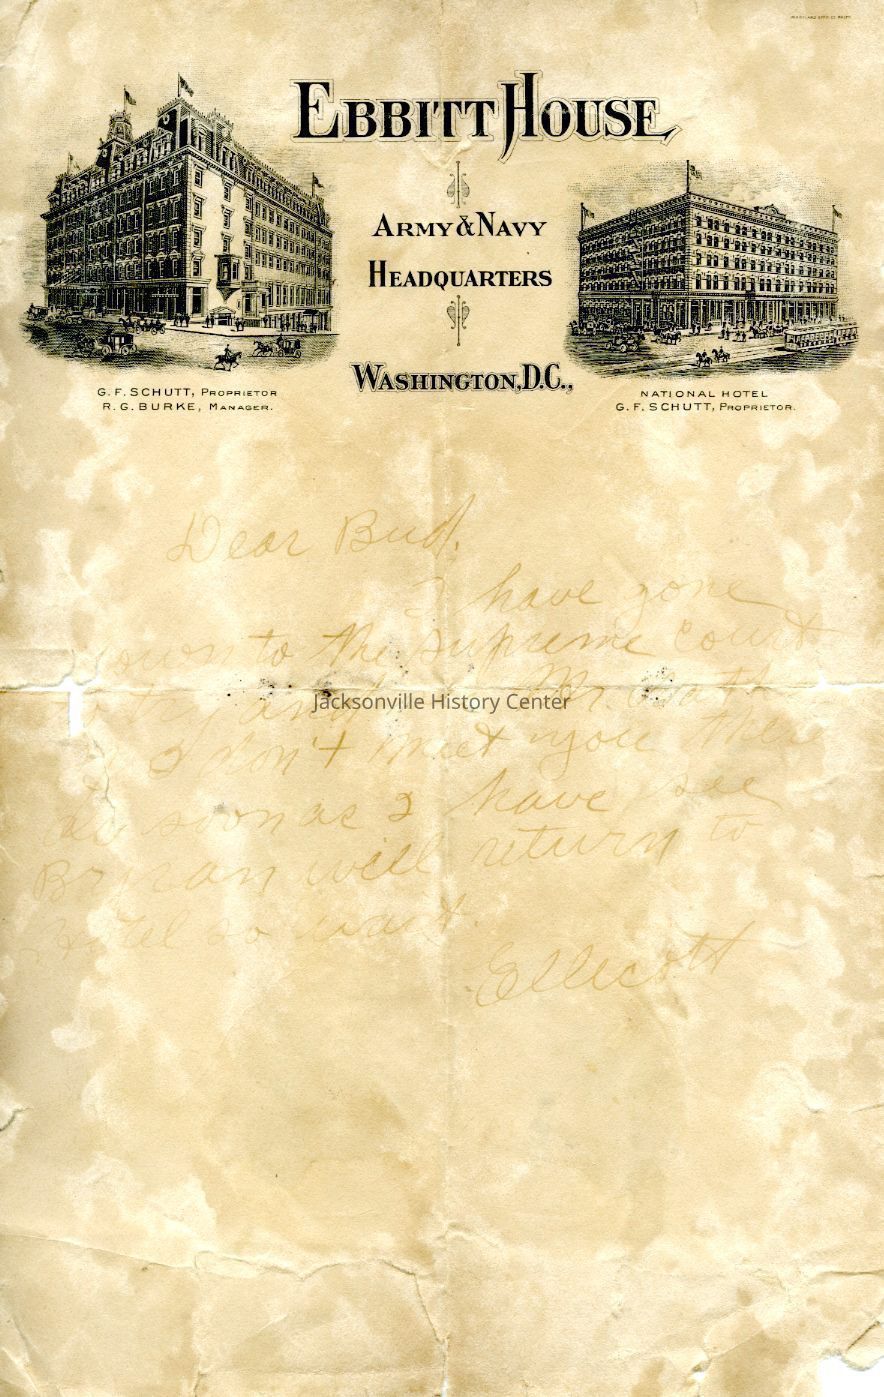 EBBITT HOUSE,
ARMY & NAVY
HEADQUARTERS
WASHINGTON, D.C.,
G. F. SCHUTT, PROPRIETOR
R. G. BURKE, MANAGER.
NATIONAL HOTEL
G. F. SCHUTT, PROPRIETOR.
Dear Bud.
I have gone
down to the supreme court
to try and Mr.
I don't meet you there
as soon as I have see
Bryan will return to
Hotel so wait.
Ellicott
Jacksonville History Center